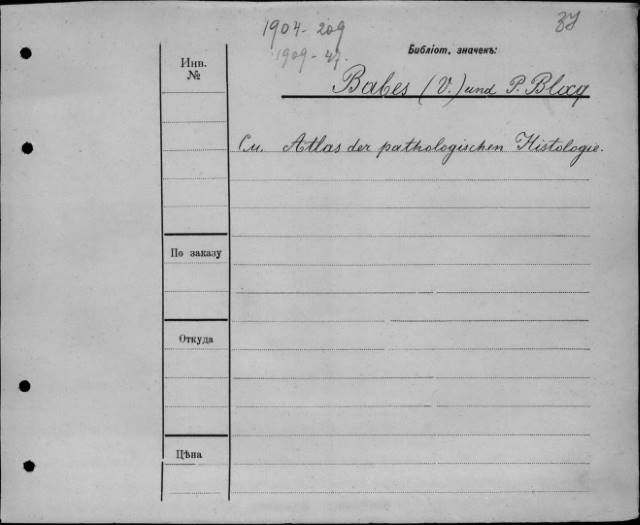 1904-209
37
1909-47.
Библіот. значекъ:
Инв.
№
Babes (V.) und P. Blocq
См. Atlas der pathologischen Histologie.
По заказу
Откуда
Цѣна